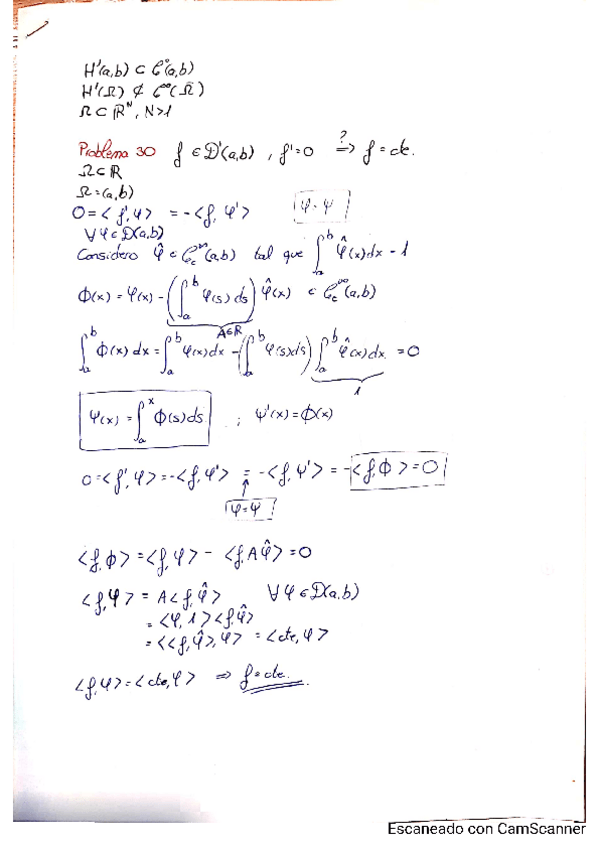 H¹(a,b) ⊂ C⁰(a,b)
H¹(Ω) ⊄ C⁰(Ω)
Ω ⊂ ℝᴺ, N>1
Problema 30 f ∈ D'(a,b) , f'=0 ?⟹ f = cte.
Ω ⊂ ℝ
Ω = (a,b)
0 = <f', φ> = -<f, φ'> φ = ψ
∀ φ ∈ D(a,b)
Considero φ̂ ∈ C_c^∞(a,b) tal que ∫_a^b φ̂(x)dx = 1
Φ(x) = φ(x) - (∫_a^b φ(s) ds) φ̂(x) ∈ C_c^∞(a,b)
A∈ℝ
∫_a^b Φ(x) dx = ∫_a^b φ(x)dx - (∫_a^b φ(s)ds) ∫_a^b φ̂(x)dx = 0
1
ψ(x) = ∫_a^x Φ(s)ds ; ψ'(x) = Φ(x)
0 = <f', φ> = -<f, φ'> = -<f, ψ'> = -<f, Φ> = 0
φ=ψ
<f, Φ> = <f, φ> - <f, Aφ̂> = 0
<f, φ> = A<f, φ̂> ∀ φ ∈ D(a,b)
= <φ, 1><f, φ̂>
= <<f, φ̂>, φ> = <cte, φ>
<f, φ> = <cte, φ> ⇒ f = cte.
Escaneado con CamScanner